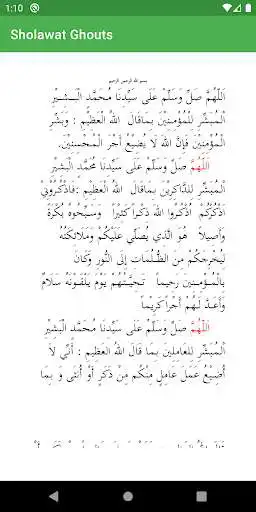 1:10
Sholawat Ghouts
بسم الله الرحمن الرحيم
اَللّٰهُمَّ صَلِّ وَسَلِّمْ عَلَى سَيِّدِنَا مُحَمَّدٍ الْبَشِيْرِ
الْمُبَشِّرِ لِلْمُؤْمِنِيْنَ بِمَاقَالَ اللهُ الْعَظِيْمُ : وَبَشِّرِ
الْمُؤْمِنِيْنَ فَإِنَّ اللهَ لَا يُضِيْعُ أَجْرَ الْمُحْسِنِيْنَ.
اَللّٰهُمَّ صَلِّ وَسَلِّمْ عَلَى سَيِّدِنَا مُحَمَّدٍ الْبَشِيْرِ
الْمُبَشِّرِ لِلذَّاكِرِيْنَ بِمَاقَالَ اللهُ الْعَظِيْمُ :فَاذْكُرُوْنِي
أَذْكُرْكُمْ اُذْكُرُوا اللهَ ذِكْرًا كَثِيْرًا وَسَبِّحُوْهُ بُكْرَةً
وَأَصِيْلًا هُوَ الَّذِي يُصَلِّي عَلَيْكُمْ وَمَلَائِكَتُهُ
لِيُخْرِجَكُمْ مِنَ الظُّلُمَاتِ إِلَى النُّوْرِ وَكَانَ
بِالْمُؤْمِنِيْنَ رَحِيْمًا تَحِيَّتُهُمْ يَوْمَ يَلْقَوْنَهُ سَلَامٌ
وَأَعَدَّ لَهُمْ أَجْرًا كَرِيْمًا
اَللّٰهُمَّ صَلِّ وَسَلِّمْ عَلَى سَيِّدِنَا مُحَمَّدٍ الْبَشِيْرِ
الْمُبَشِّرِ لِلْعَامِلِيْنَ بِمَا قَالَ اللهُ الْعَظِيْمُ : أَنِّي لَا
أُضِيْعُ عَمَلَ عَامِلٍ مِنْكُمْ مِنْ ذَكَرٍ أَوْ أُنْثَى وَ بِمَا